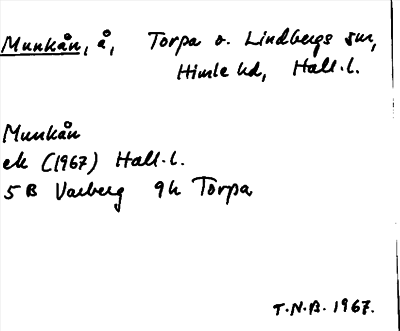 Munkån, å, Torpa o. Lindbergs snr,
Himle hd, Hall. l.
Munkån
ek (1967) Hall. l.
5 B Varberg 9h Torpa
T.N.B. 1967.